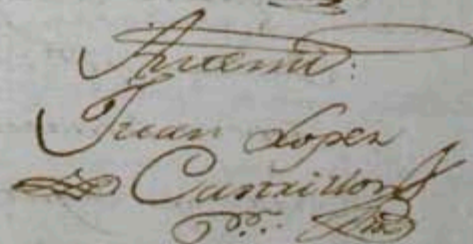 Ante mi:
Juan Lopez
Castrillon